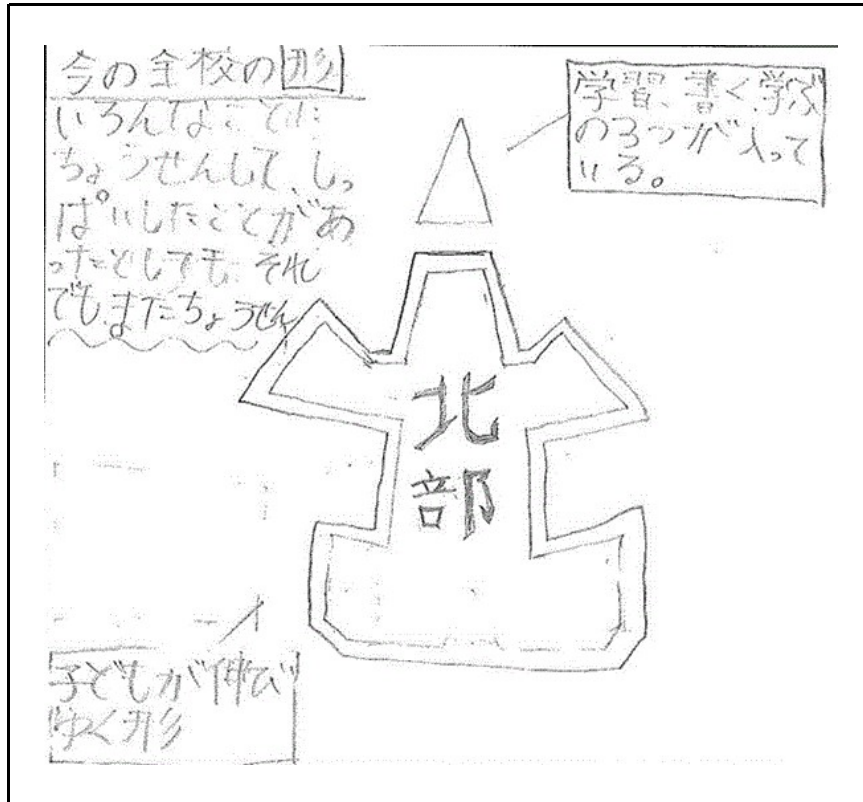 今の全校の形
いろんなことに
ちょうせんして、しっ
ぱいしたことがあ
ったとしても、それ
でも、またちょうせん
学習、書く、学ぶ
の3つが入って
いる。
北
部
子どもが伸び
ゆく形